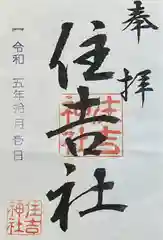 奉拝
住吉社
令和五年拾月壱日
住吉
神社
住吉
神社